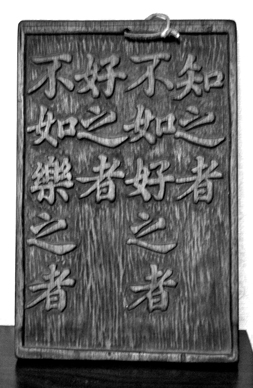 知之者
不如好之者
好之者
不如樂之者